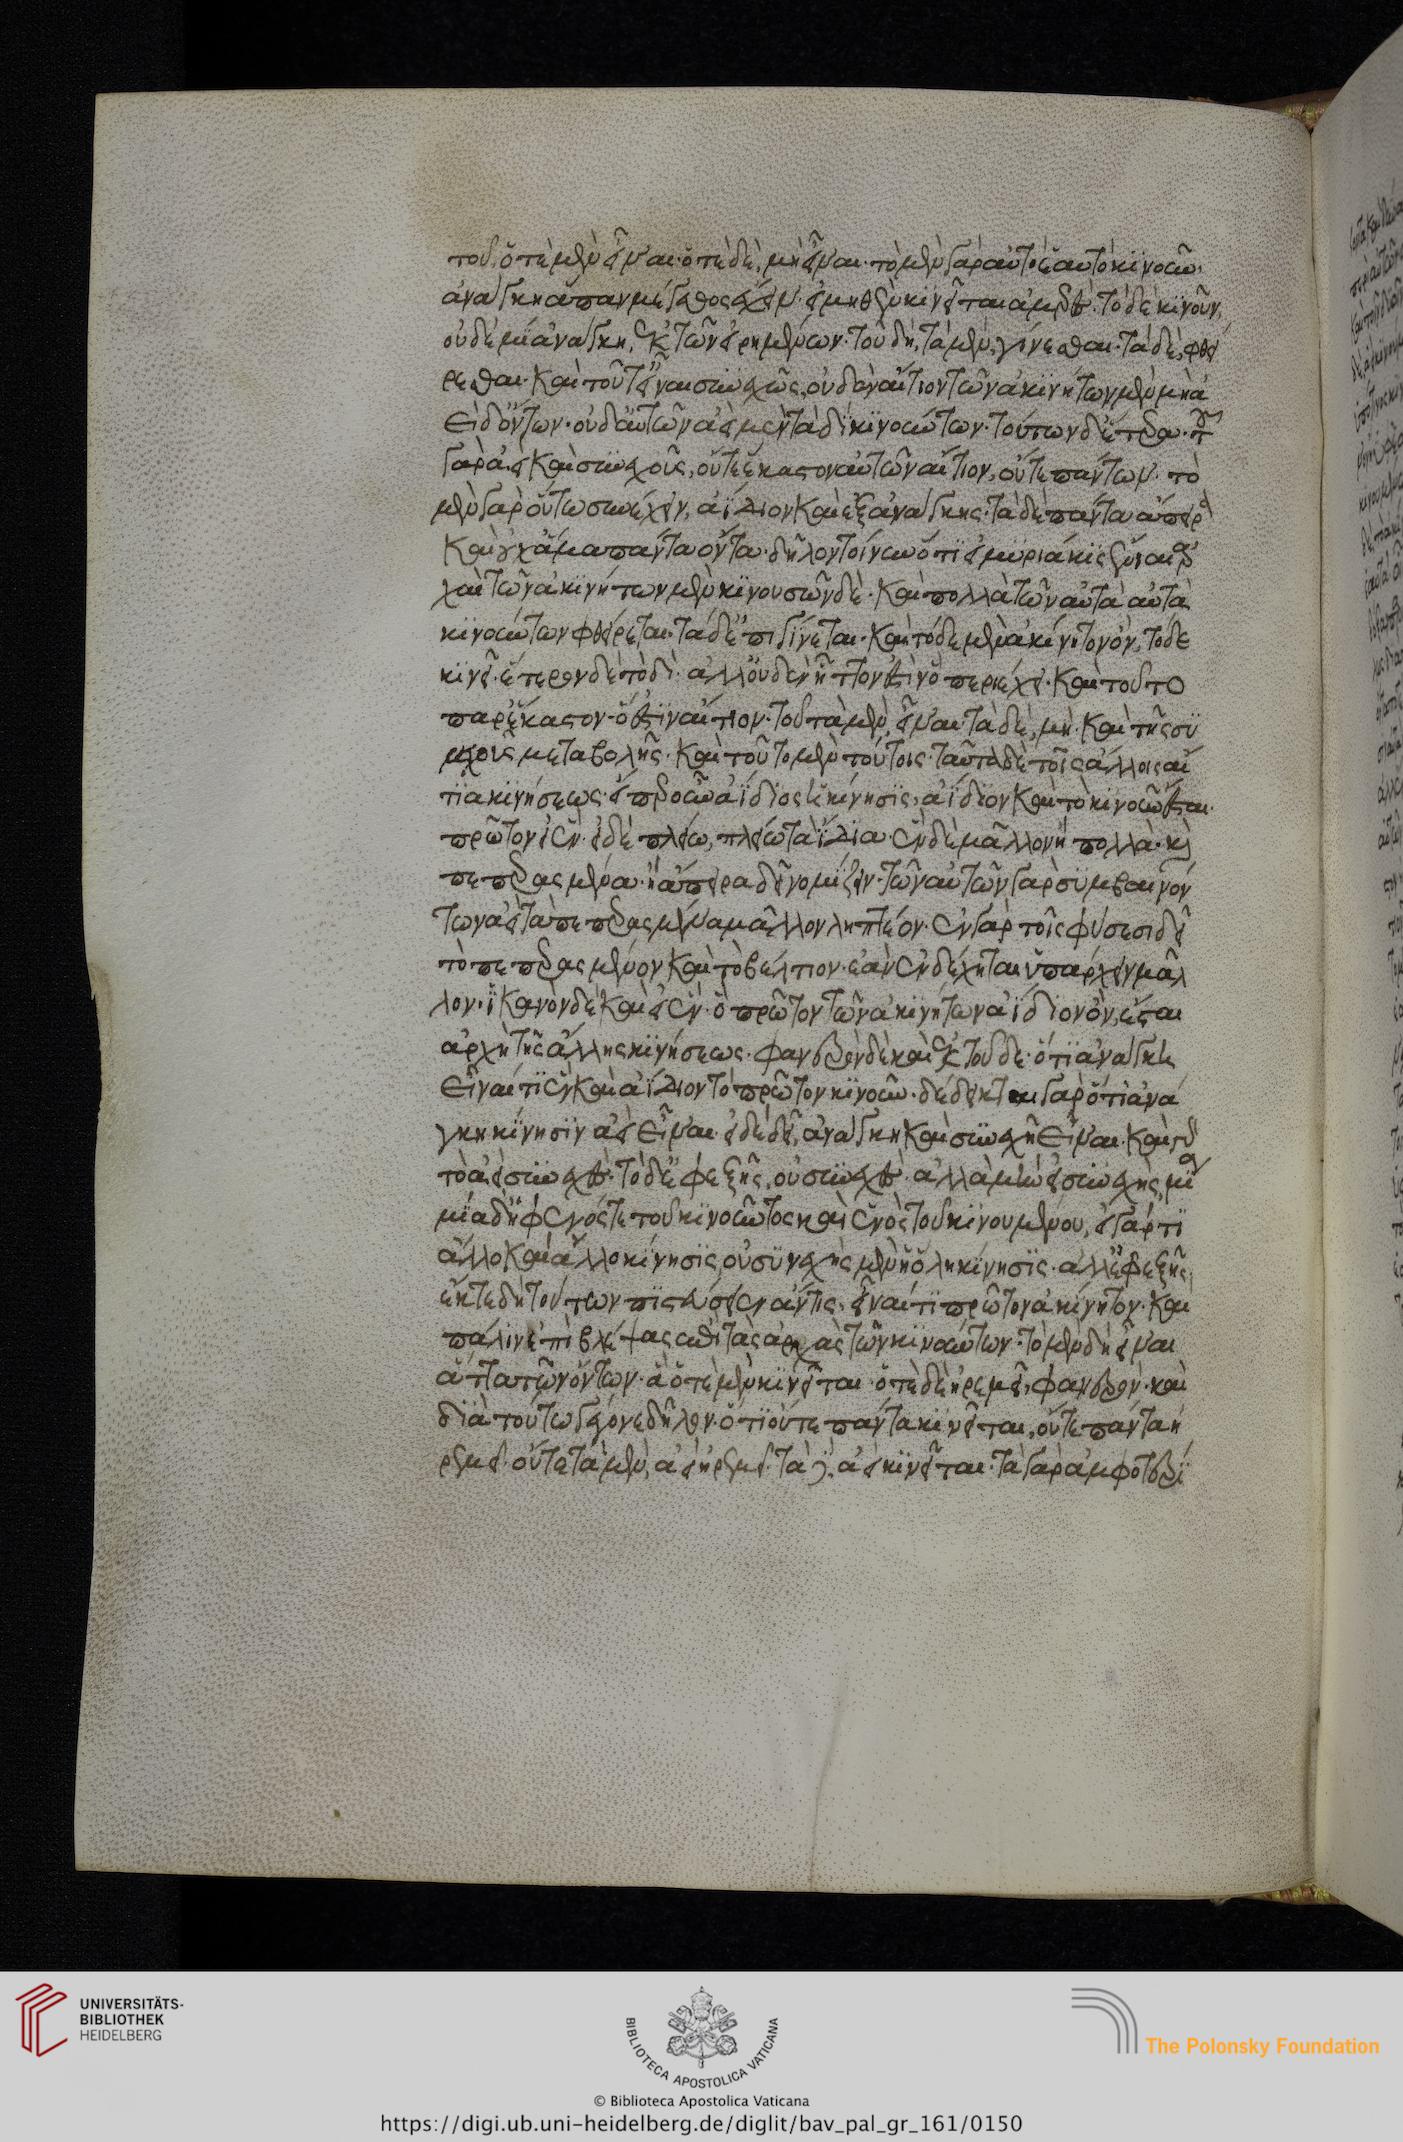 τοῦ, ὁτὲ μὲν εἶναι· ὁτὲ δὲ, μὴ εἶναι· τὸ μὲν γὰρ αὐτὸ ἑαυτὸ κινοῦν,
ἀνάγκη ἅπαν μέγεθος ἔχειν· εἰ μηθὲν κινεῖται ἀμερές· τὸ δὲ κινοῦν,
οὐδὲ μί ἀνάγκη, ἐκ τῶν εἰρημένων· τοῦ δὴ, τὰ μὲν, γίνεσθαι· τὰ δὲ, φθεί
ρεσθαι· καὶ τοῦτ' εἶναι συνεχῶς, οὐδὲν αἴτιον τῶν ἀκινήτων μὲν μὴ ἀ
εὶ δ' ὄντων· οὐδ' αὖ τῶν ἀεὶ μὲν ταδὶ κινούντων· τούτων δ' ἕτερα· τοῦ
γὰρ ἀεὶ καὶ συνεχοῦς, οὔτε ἕκαστον αὐτῶν αἴτιον, οὔτε πάντων· τὸ
μὲν γὰρ οὕτω συνέχειν, ἀΐδιον καὶ ἐξ ἀνάγκης· τὰ δὲ πάντα ἄπειρα
καὶ οὐχ ἅμα πάντα ὄντα· δῆλον τοίνυν ὅτι εἰ μυριάκις ἔνιαι ἀρ
χαὶ τῶν ἀκινήτων μὲν κινουσῶν δὲ· καὶ πολλὰ τῶν αὐτὰ αὑτὰ
κινούντων φθείρεται· τὰ δ' ἐπιγίνεται· καὶ τόδε μὲν ἀκίνητον ὂν, τόδε
κινεῖ· ἕτερον δὲ τοδὶ· ἀλλ' οὐδὲν ἧττον ἐστὶν ὃ περιέχει· καὶ τοῦτο
παρ' ἕκαστον· ὅ ἐστιν αἴτιον· τοῦ τὰ μὲν, εἶναι· τὰ δὲ, μὴ· καὶ τῆς συ
νεχοῦς μεταβολῆς· καὶ τοῦτο μὲν τούτοις· ταῦτα δὲ τοῖς ἄλλοις αἴ
τια κινήσεως· εἴπερ οὖν ἀΐδιος ἡ κίνησις, ἀΐδιον καὶ τὸ κινοῦν ἔσται·
πρῶτον εἰ ἕν· εἰ δὲ πλείω, πλείω τὰ ἀΐδια· ἓν δὲ μᾶλλον ἢ πολλὰ· καὶ
πεπερασμένα· ἢ ἄπειρα δεῖ νομίζειν· τῶν αὐτῶν γὰρ συμβαινόν
των ἀεὶ τὰ πεπερασμένα μᾶλλον ληπτέον· ἐν γὰρ τοῖς φύσεσι δεῖ
τὸ πεπερασμένον καὶ τὸ βέλτιον· ἐὰν ἐνδέχηται ὑπάρχειν μᾶλ
λον· ἱκανὸν δὲ καὶ εἰ ἕν· ὃ πρῶτον τῶν ἀκινήτων ἀΐδιον ὂν, ἔσται
ἀρχὴ τῆς ἄλλης κινήσεως· φανερὸν δὲ καὶ ἐκ τοῦδε· ὅτι ἀνάγκη
εἶναί τι ἓν καὶ ἀΐδιον τὸ πρῶτον κινοῦν· δέδεικται γὰρ ὅτι ἀνά
γκη κίνησιν ἀεὶ εἶναι· εἰ δὲ δεῖ, ἀνάγκη καὶ συνεχῆ εἶναι· καὶ γὰρ
τὸ ἀεὶ συνεχές· τὸ δ' ἐφεξῆς, οὐ συνεχές· ἀλλὰ μὴν εἰ συνεχὴς, μία
μία δ' ἡ ἐφ' ἑνός τε τοῦ κινοῦντος καὶ ἑνὸς τοῦ κινουμένου, εἰ γάρ τι
ἄλλο καὶ ἄλλο κίνησις, οὐ συνεχὴς μὲν ἡ ὅλη κίνησις· ἀλλ' ἐφεξῆς,
ἔκ τε δὴ τούτων πιστεύσειεν ἄν τις, εἶναί τι πρῶτον ἀκίνητον· καὶ
πάλιν ἐπιβλέψας ἐπὶ τὰς ἀρχὰς τῶν κινούντων· τὸ μὲν δὴ εἶναι
ἄττα τῶν ὄντων· ἃ ὁτὲ μὲν κινεῖται· ὁτὲ δὲ ἠρεμεῖ, φανερόν· καὶ
διὰ τούτου γέγονε δῆλον· ὅτι οὔτε πάντα κινεῖται, οὔτε πάντα ἠ
ρεμεῖ· οὔτε τὰ μὲν, ἀεὶ ἠρεμεῖ· τὰ δὲ, ἀεὶ κινεῖται· τὰ γὰρ ἀμφοτερί
UNIVERSITÄTS-
BIBLIOTHEK
HEIDELBERG
BIBLIOTECA APOSTOLICA VATICANA
© Biblioteca Apostolica Vaticana
The Polonsky Foundation
https://digi.ub.uni-heidelberg.de/diglit/bav_pal_gr_161/0150